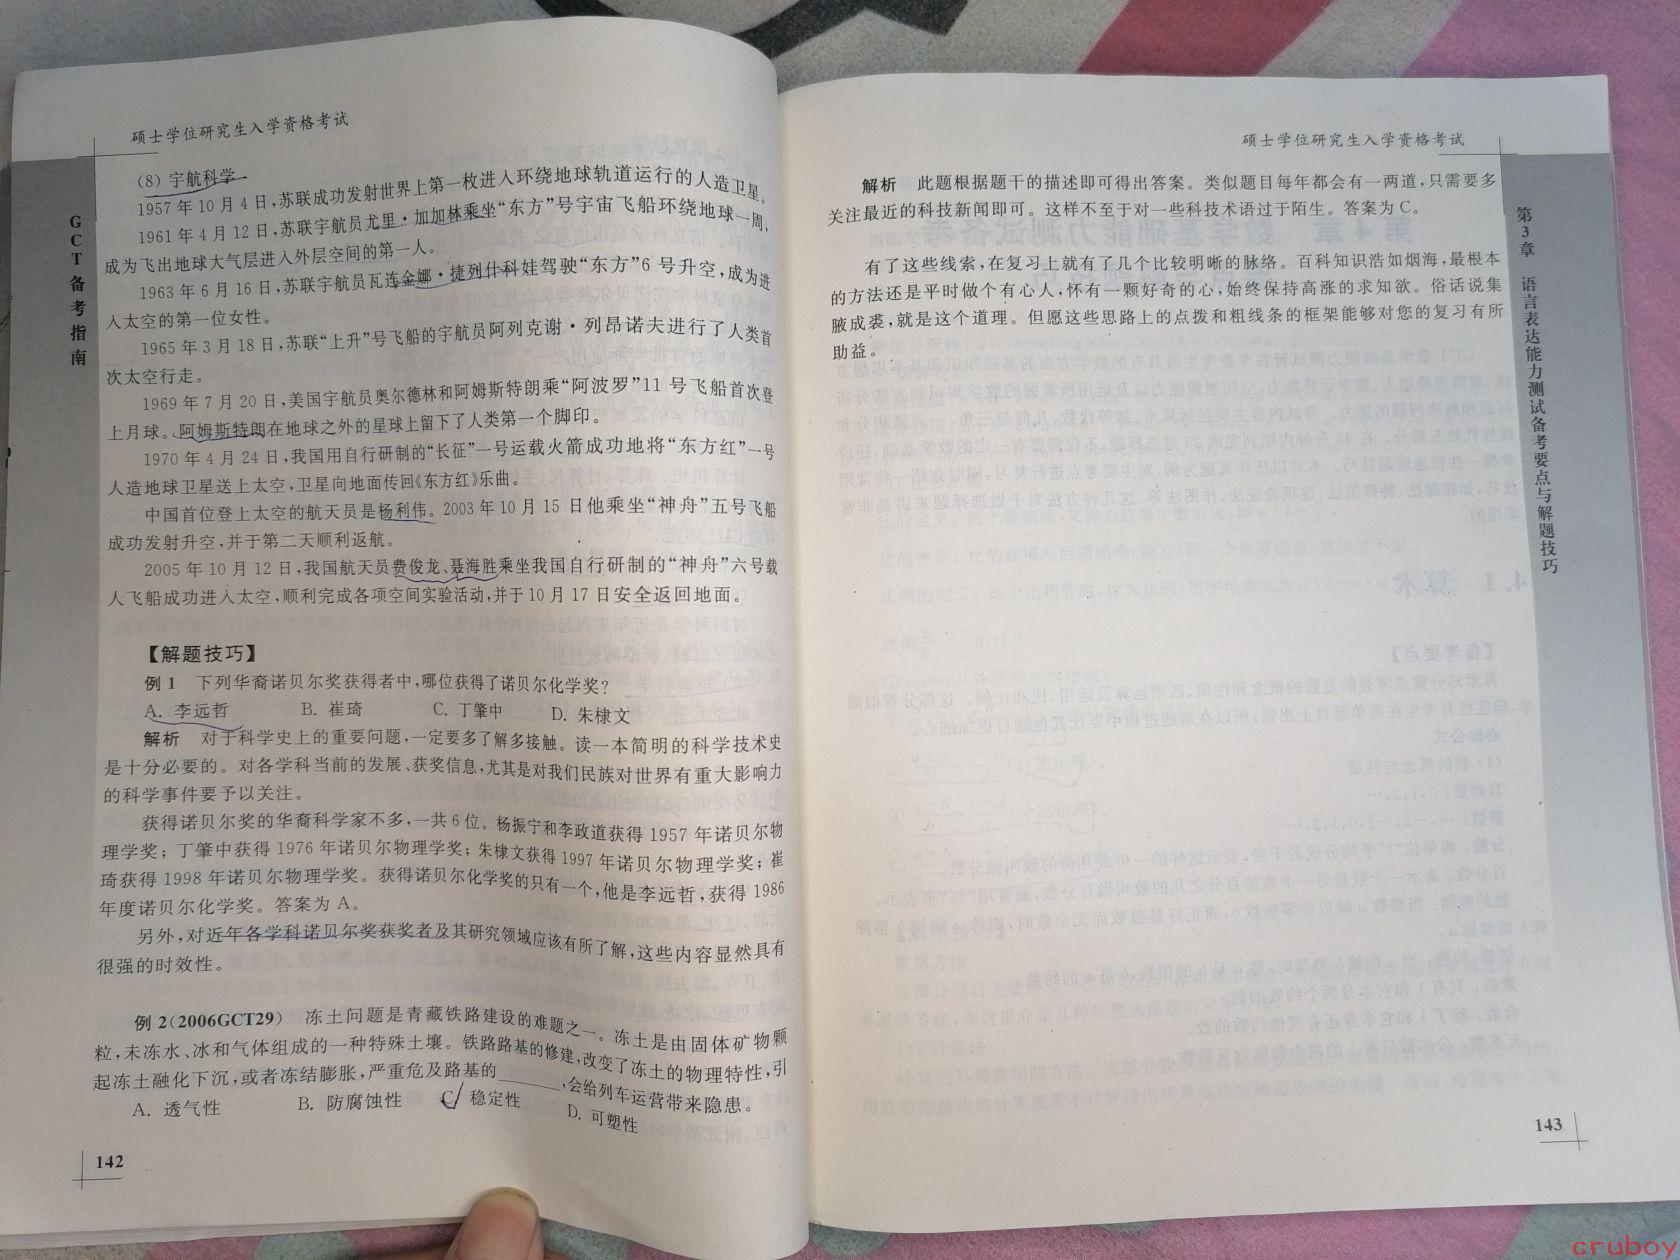 硕士学位研究生入学资格考试
GCT备考指南
(8) 宇航科学
1957年10月4日,苏联成功发射世界上第一枚进入环绕地球轨道运行的人造卫星。
1961年4月12日,苏联宇航员尤里·加加林乘坐“东方”号宇宙飞船环绕地球一周,
成为飞出地球大气层进入外层空间的第一人。
1963年6月16日,苏联宇航员瓦连金娜·捷列什科娃驾驶“东方”6号升空,成为进
入太空的第一位女性。
1965年3月18日,苏联“上升”号飞船的宇航员阿列克谢·列昂诺夫进行了人类首
次太空行走。
1969年7月20日,美国宇航员奥尔德林和阿姆斯特朗乘“阿波罗”11号飞船首次登
上月球。阿姆斯特朗在地球之外的星球上留下了人类第一个脚印。
1970年4月24日,我国用自行研制的“长征”一号运载火箭成功地将“东方红”一号
人造地球卫星送上太空,卫星向地面传回《东方红》乐曲。
中国首位登上太空的航天员是杨利伟。2003年10月15日他乘坐“神舟”五号飞船
成功发射升空,并于第二天顺利返航。
2005年10月12日,我国航天员费俊龙、聂海胜乘坐我国自行研制的“神舟”六号载
人飞船成功进入太空,顺利完成各项空间实验活动,并于10月17日安全返回地面。
【解题技巧】
例1 下列华裔诺贝尔奖获得者中,哪位获得了诺贝尔化学奖?
A. 李远哲 B. 崔琦 C. 丁肇中 D. 朱棣文
解析 对于科学史上的重要问题,一定要多了解多接触。读一本简明的科学技术史
是十分必要的。对各学科当前的发展、获奖信息,尤其是对我们民族对世界有重大影响力
的科学事件要予以关注。
获得诺贝尔奖的华裔科学家不多,一共6位。杨振宁和李政道获得1957年诺贝尔物
理学奖；丁肇中获得1976年诺贝尔物理学奖；朱棣文获得1997年诺贝尔物理学奖；崔
琦获得1998年诺贝尔物理学奖。获得诺贝尔化学奖的只有一个,他是李远哲,获得1986
年度诺贝尔化学奖。答案为A。
另外,对近年各学科诺贝尔奖获奖者及其研究领域应该有所了解,这些内容显然具有
很强的时效性。
例2(2006GCT29) 冻土问题是青藏铁路建设的难题之一。冻土是由固体矿物颗
粒,未冻水、冰和气体组成的一种特殊土壤。铁路路基的修建,改变了冻土的物理特性,引
起冻土融化下沉,或者冻结膨胀,严重危及路基的______,会给列车运营带来隐患。
A. 透气性 B. 防腐蚀性 C. 稳定性 D. 可塑性
142
硕士学位研究生入学资格考试
解析 此题根据题干的描述即可得出答案。类似题目每年都会有一两道,只需要多
关注最近的科技新闻即可。这样不至于对一些科技术语过于陌生。答案为C。
有了这些线索,在复习上就有了几个比较明晰的脉络。百科知识浩如烟海,最根本
的方法还是平时做个有心人,怀有一颗好奇的心,始终保持高涨的求知欲。俗话说集
腋成裘,就是这个道理。但愿这些思路上的点拨和粗线条的框架能够对您的复习有所
助益。
第3章 语言表达能力测试备考要点与解题技巧
143
cruboy